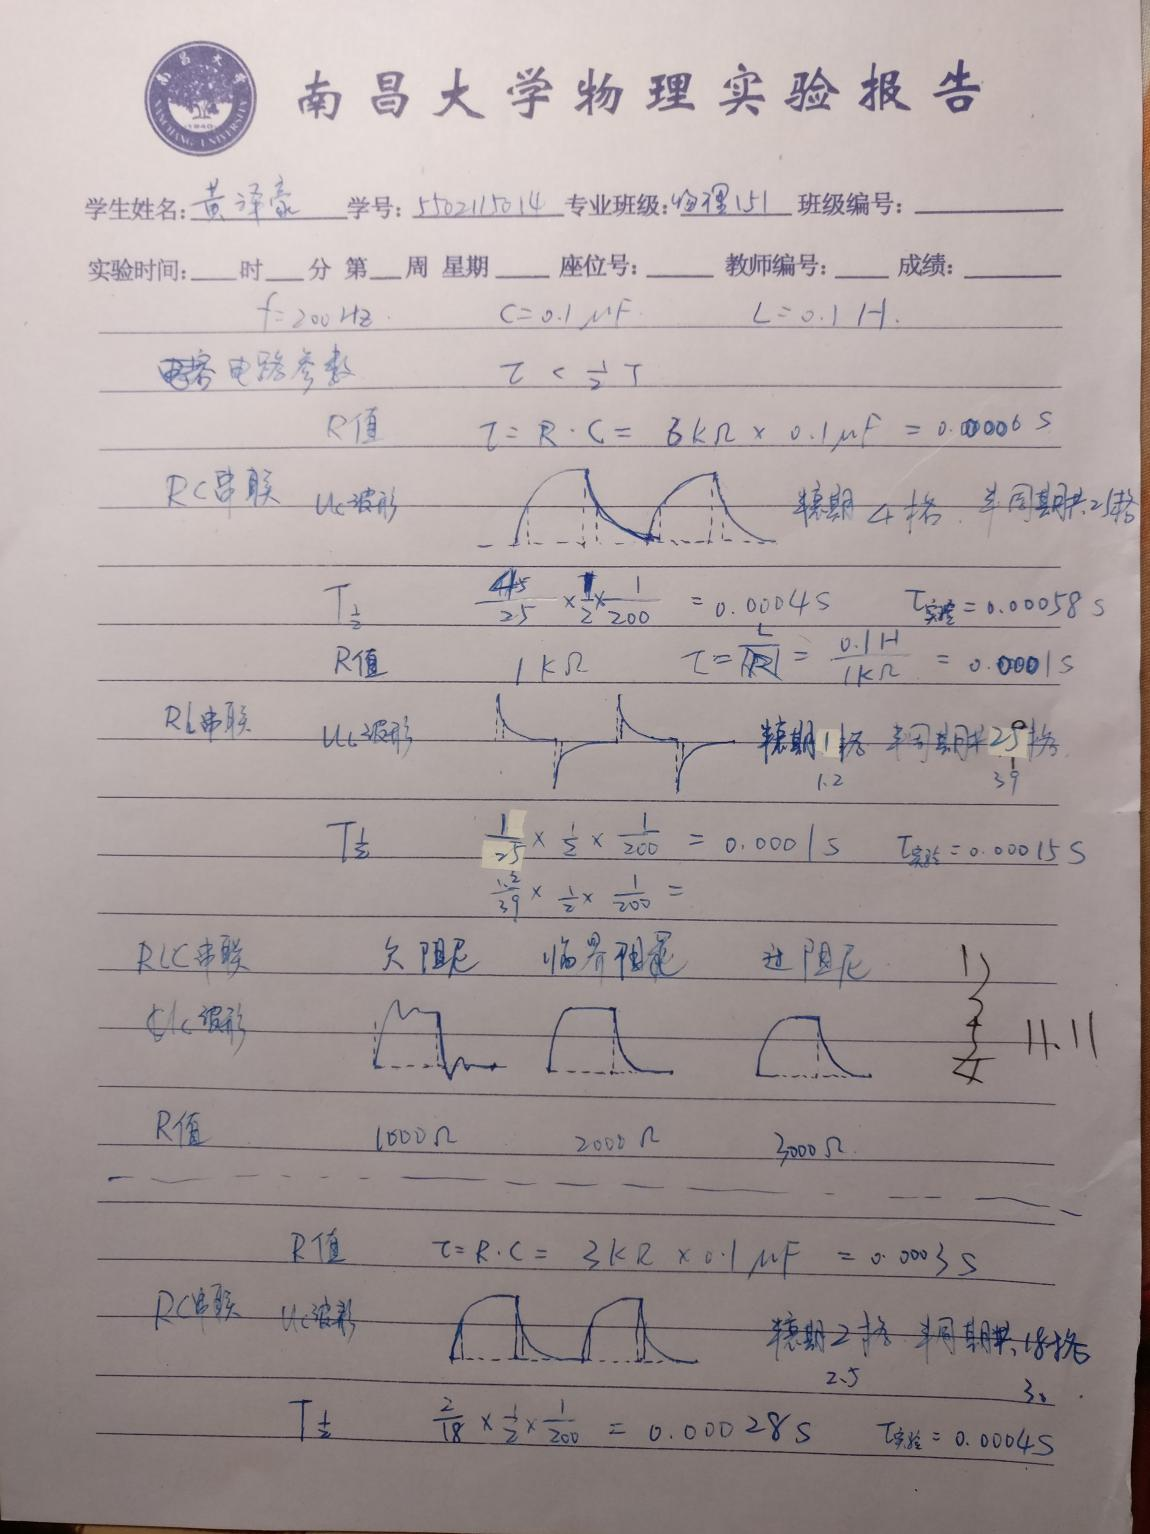 南昌大学物理实验报告
学生姓名: 黄泽豪 学号: 5502115014 专业班级: 物理151 班级编号:
实验时间: 时 分 第 周 星期 座位号: 教师编号: 成绩:
f=200Hz. C=0.1μF. L=0.1H.
电路参数 τ < 1/2 T
R值 τ= R·C= 6kΩ × 0.1μF = 0.0006 S
RC串联 Uc波形 半衰期 4格. 半周期共25格
T½ /25 × 1/2 × 1/200 = 0.0004S τ实验=0.00058S
R值 1kΩ τ= L/R = 0.1H/1kΩ = 0.0001S
RL串联 UL波形 半衰期1格 半周期共25格.
1.2 39
T½ 1/25 × 1/2 × 1/200 = 0.0001S τ实验=0.00015S
1.2/39 × 1/2 × 1/200 =
RLC串联 欠阻尼 临界阻尼 过阻尼
Uc波形 11.11
R值 1000Ω 2000Ω 3000Ω.
R值 τ=R·C= 3kΩ ×0.1μF = 0.0003S
RC串联 Uc波形 半衰期2格 半周期共18格
2.5
T½ 2/18 × 1/2 × 1/200 = 0.00028S τ实验=0.0004S